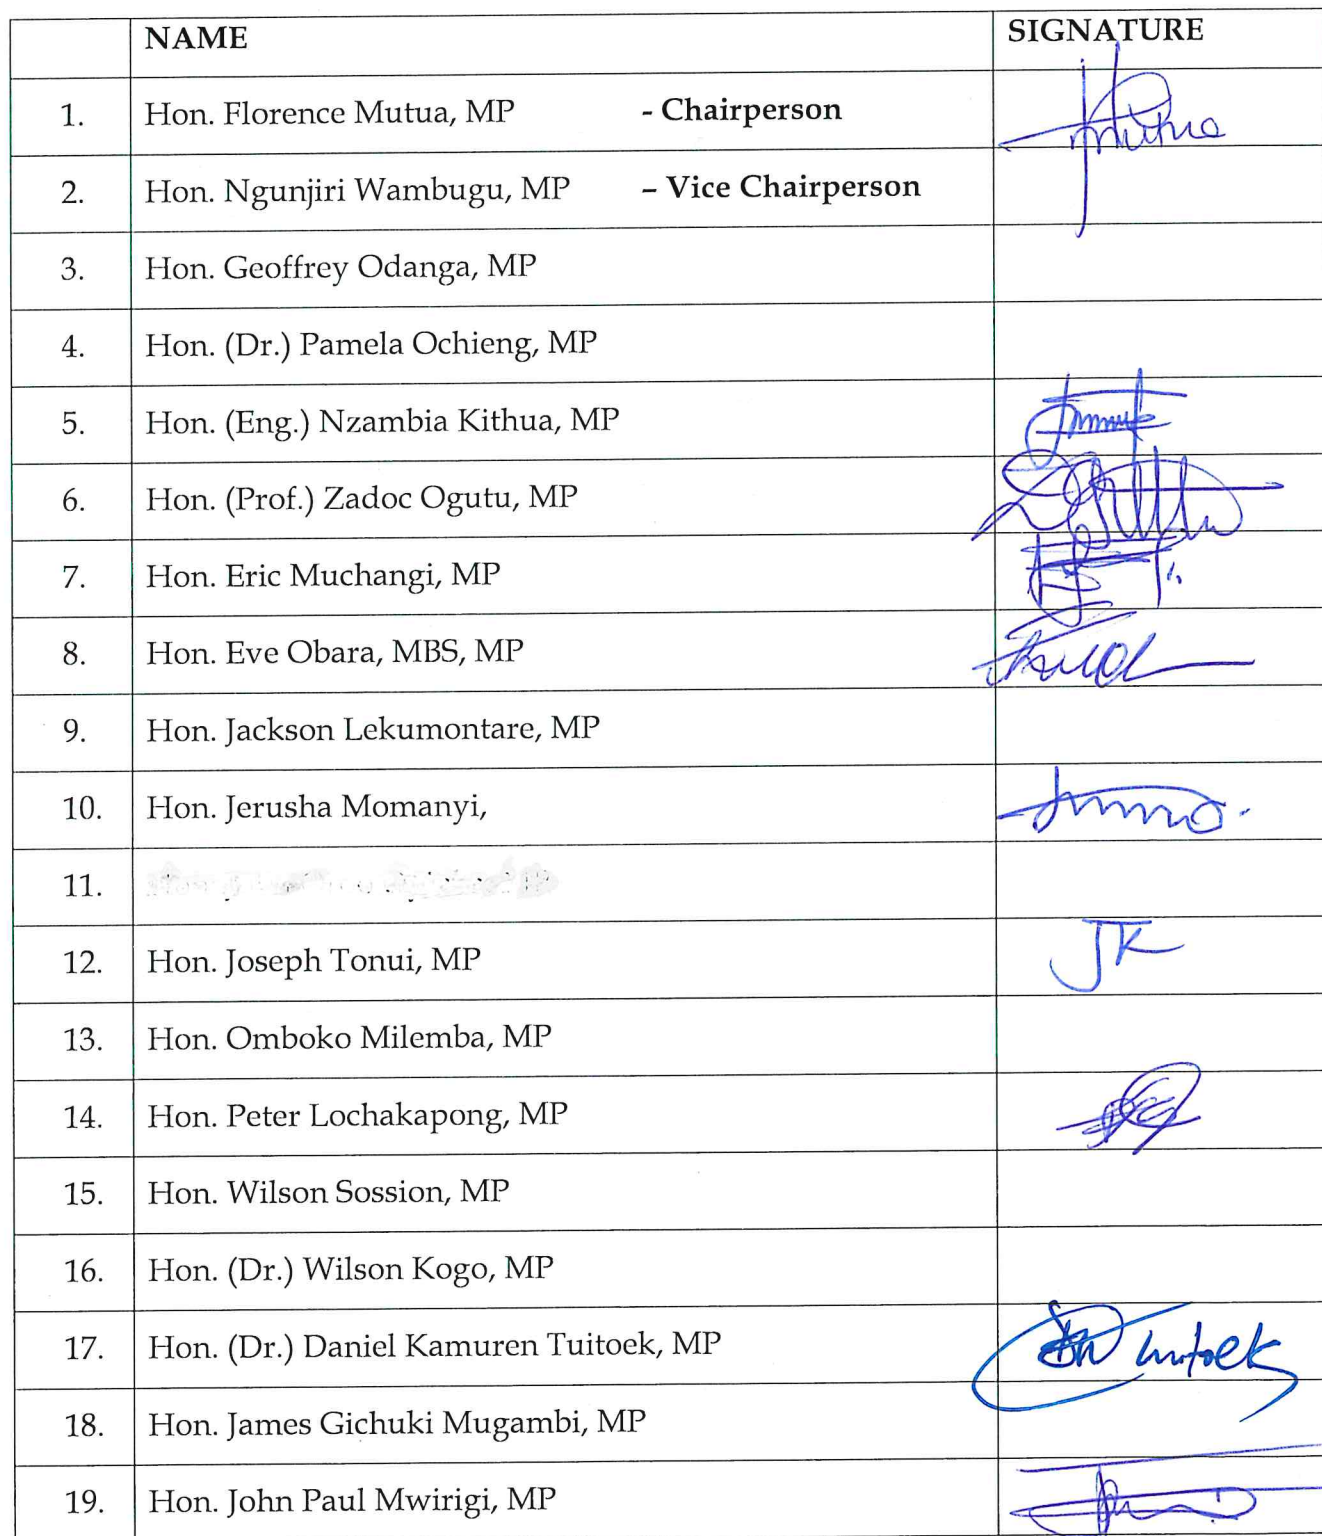 NAME SIGNATURE
1. Hon. Florence Mutua, MP - Chairperson
2. Hon. Ngunjiri Wambugu, MP – Vice Chairperson
3. Hon. Geoffrey Odanga, MP
4. Hon. (Dr.) Pamela Ochieng, MP
5. Hon. (Eng.) Nzambia Kithua, MP
6. Hon. (Prof.) Zadoc Ogutu, MP
7. Hon. Eric Muchangi, MP
8. Hon. Eve Obara, MBS, MP
9. Hon. Jackson Lekumontare, MP
10. Hon. Jerusha Momanyi,
11.
12. Hon. Joseph Tonui, MP JK
13. Hon. Omboko Milemba, MP
14. Hon. Peter Lochakapong, MP
15. Hon. Wilson Sossion, MP
16. Hon. (Dr.) Wilson Kogo, MP
17. Hon. (Dr.) Daniel Kamuren Tuitoek, MP Tuitoek
18. Hon. James Gichuki Mugambi, MP
19. Hon. John Paul Mwirigi, MP